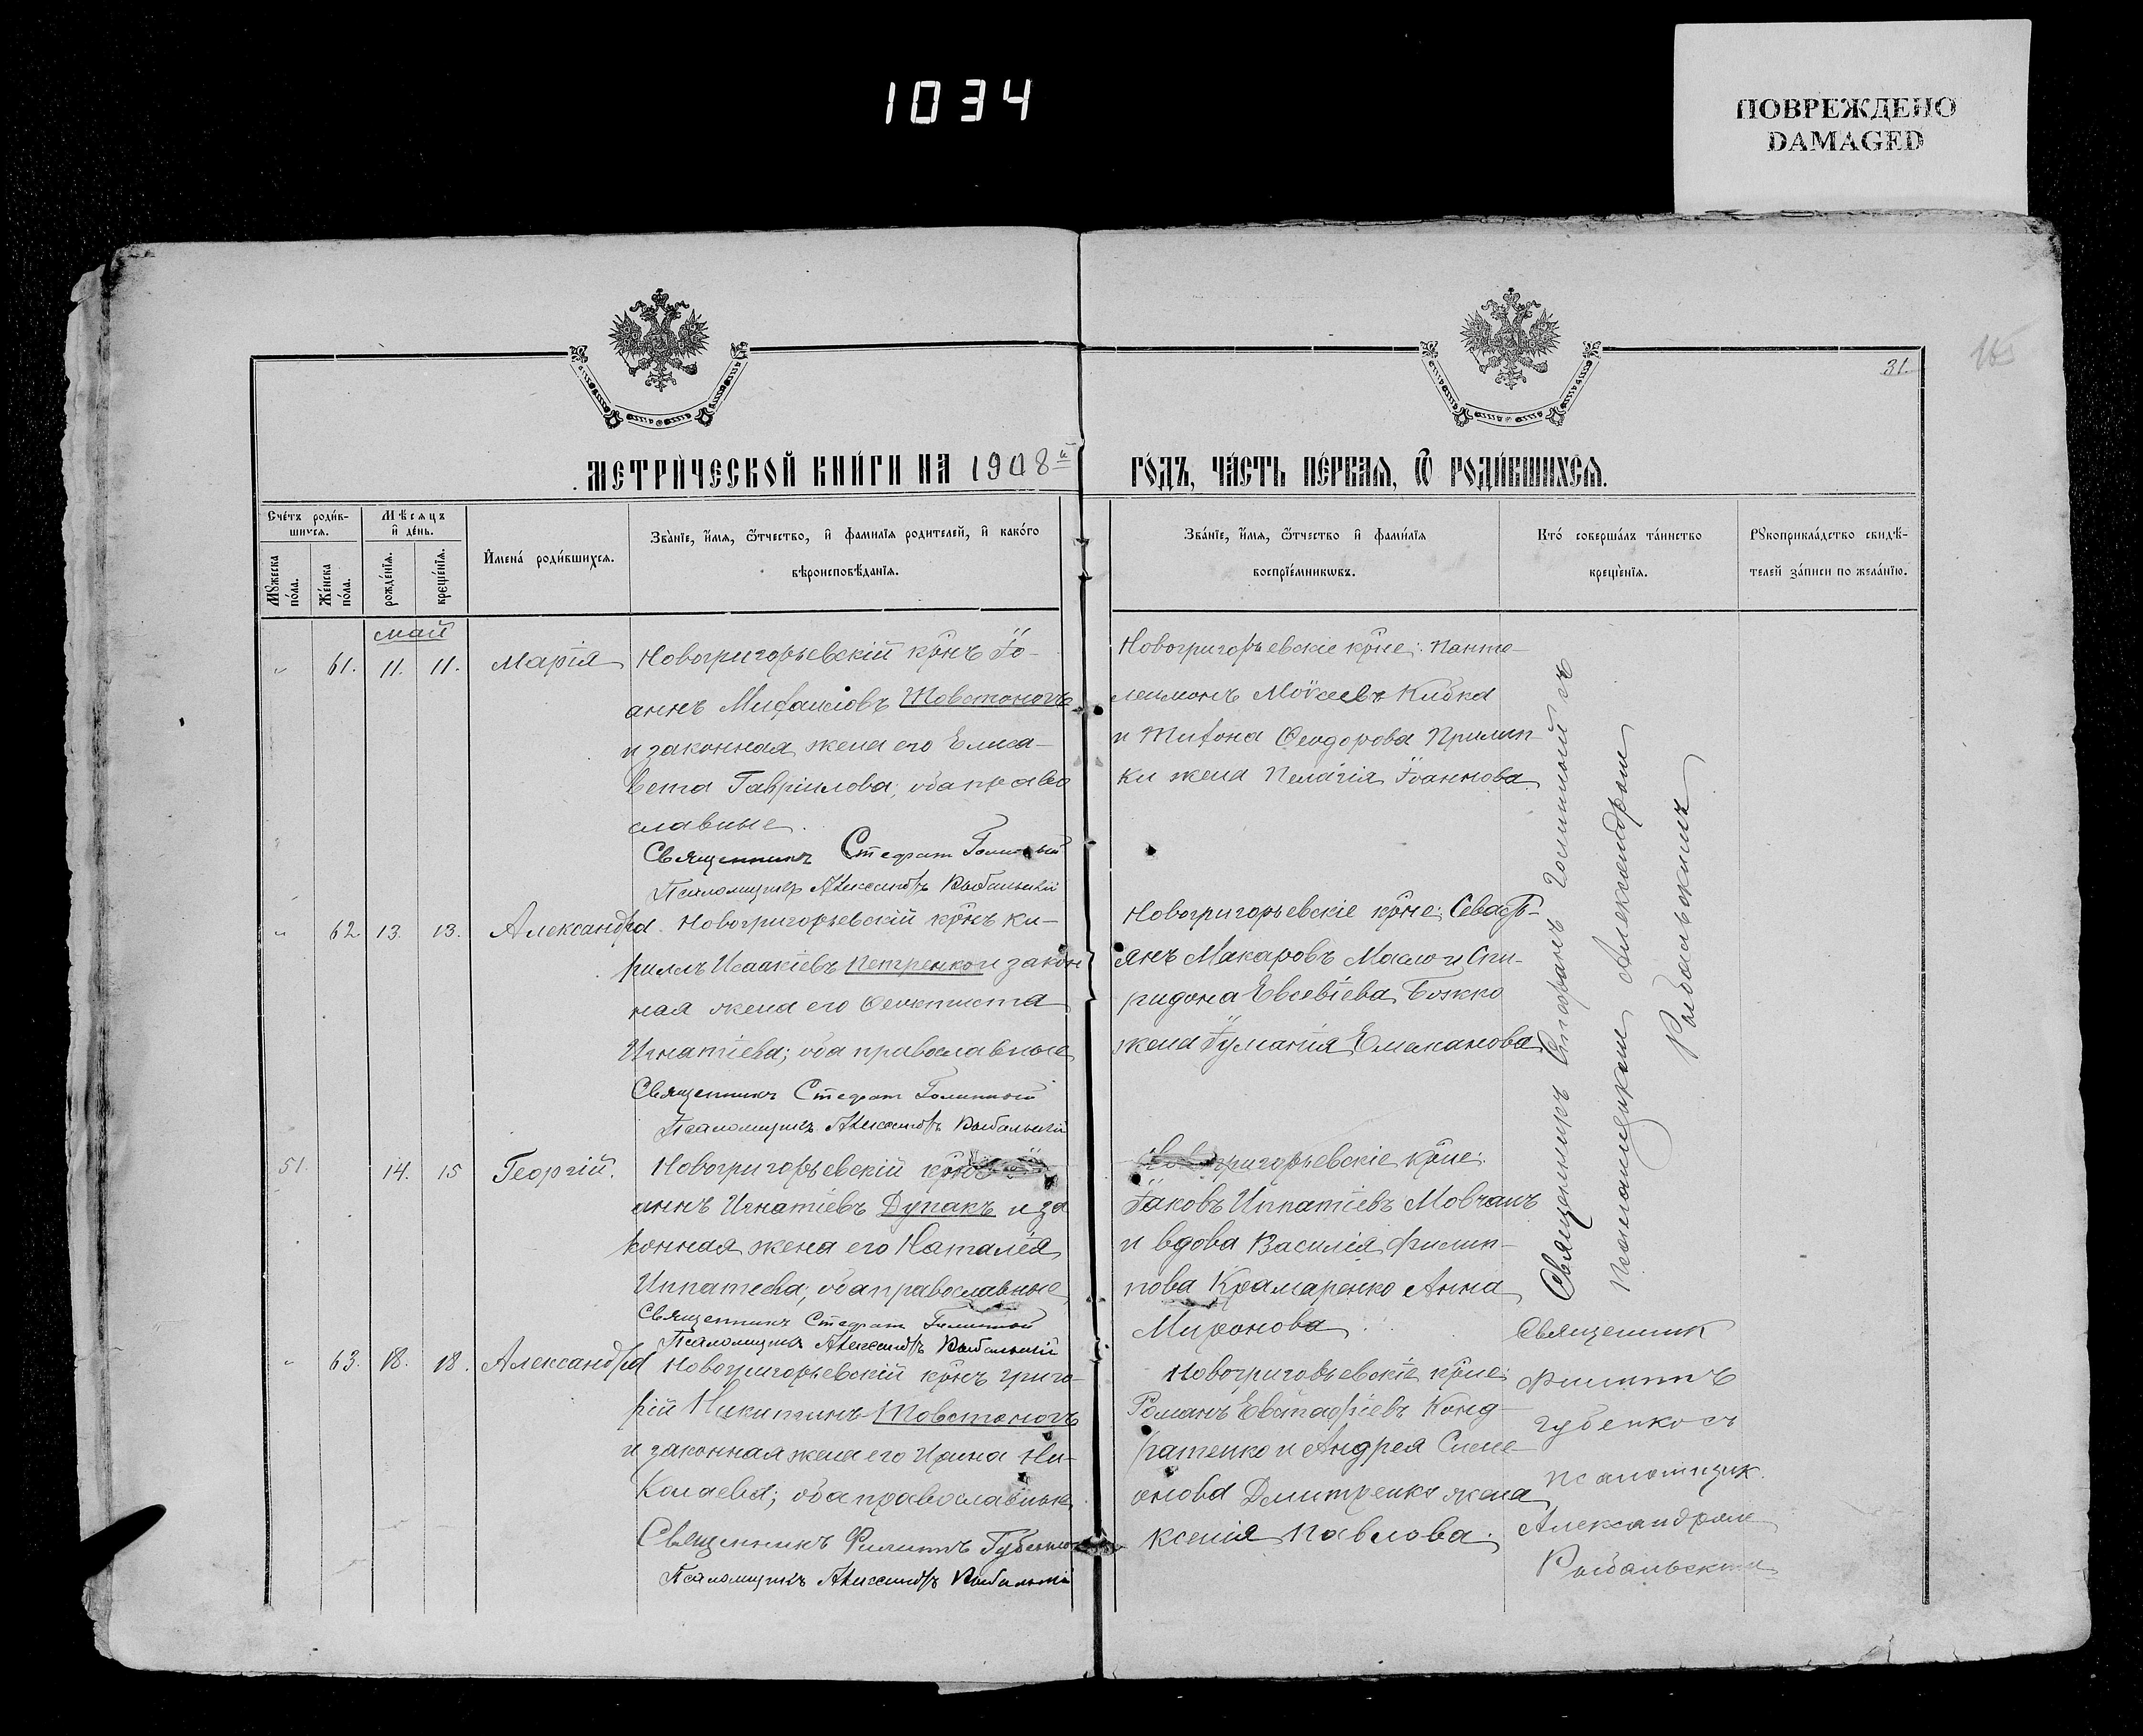 1034
ПОВРЕЖДЕНО
DAMAGED
31.
МЕТРИ́ЧЕСКОЙ КНИ́ГИ НА 1908й
ГО́ДЪ, ЧА́СТЬ ПЕ́РВАЯ, Ѿ РОДИ́ВШИХСЯ.
Сче́тъ роди́в-
шихся.
Му́жеска по́ла.
Же́нска по́ла.
Мѣ́сяцъ
и҆ де́нь.
рожде́нїя.
креще́нїя.
И҆мена̀ роди́вшихся.
Зва́нїе, и҆́мя, ѻ҆́тчество, и҆ фами́лїя роди́телей, и҆ како́го
вѣроисповѣ́данїя.
Зва́нїе, и҆́мя, ѻ҆́тчество и҆ фами́лїя
воспрїе́мникѡвъ.
Кто́ соверша́лъ та́инство
креще́нїя.
Рꙋкоприкла́дство свидѣ́-
телей за́писи по жела́нїю.
май
" 61. 11. 11. Марія
Новогригорьевскій крнъ Іо-
аннъ Михаиловъ Товстоногъ
и законная жена его Елиса-
вета Гавріилова; оба право
славные.
Священникъ Стефан Голинный
Псаломщикъ Александръ Рыбальскій
Новогригорьевскіе крне: Панте-
леимонъ Моѵсеевъ Кибка
и Тихона Ѳеодорова Прилип-
ки жена Пелагія Іоаннова.
" 62. 13. 13. Александра
Новогригорьевскій крнъ Ки-
риллъ Исаакіевъ Петренко и закон
ная жена его Ѳеоктиста
Игнатіева; оба православные
Священникъ Стефан Голинный
Псаломщикъ Александръ Рыбальскій
Новогригорьевскіе крне: Севасть-
янъ Макаровъ Масло и Спи-
ридона Евсевіева Божко
жена Іуліанія Емиліанова
51. 14. 15 Георгій.
Новогригорьевскій крнъ Іо-
аннъ Игнатіевъ Дупакъ и за
конная жена его Наталія
Ипатіева; оба православные
Священникъ Стефан Голинный
Псаломщикъ Александръ Рыбальскій
Новогригорьевскіе крне:
Іаковъ Ипатіевъ Мовчанъ
и вдова Василія Филип-
пова Крамаренко Анна
Миронова.
Священникъ Стефанъ Голинный съ
Псаломщикомъ Александромъ
Рыбальскимъ
" 63. 18. 18. Александра
Новогригорьевскій крнъ Григо-
рій Никитинъ Товстоногъ
и законная жена его Ирина Ни-
колаева; оба православные
Священникъ Филиппъ Губенко
Псаломщикъ Александръ Рыбальскій
Новогригорьевскіе крне:
Романъ Евстафіевъ Конд-
ратенко и Андрея Симе-
онова Дмитренко жена
Ксенія Павлова.
Священник
Филиппъ
Губенко съ
псаломщик.
Александромъ